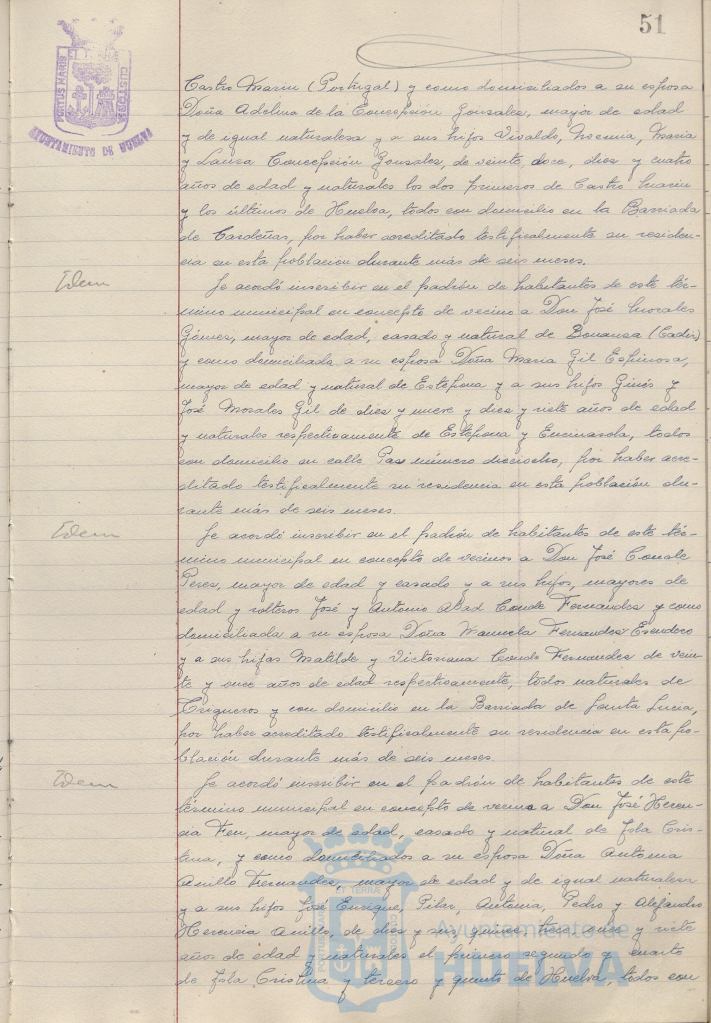 51
PORTUS MARIS
CUSTODIA
AYUNTAMIENTO DE HUELVA
Castro Marin (Portugal) y como domiciliados a su esposa
Doña Adelina de la Concepción Gonzales, mayor de edad
y de igual naturalesa y a sus hijos Vivaldo, Noemia, Maria
y Laura Concepción Gonzales, de veinte, doce, dies y cuatro
años de edad y naturales los dos primeros de Castro Marin
y los últimos de Huelva, todos con domicilio en la Barriada
de Cardeñas, por haber acreditado testificalmente su residen-
cia en esta poblacion durante más de seis meses.
Idem
Se acordó inscribir en el padrón de habitantes de este tér-
mino municipal en concepto de vecino a Don José Morales
Gómes, mayor de edad, casado y natural de Bonansa (Cadis)
y como domiciliada a su esposa Doña Maria Gil Espinosa,
mayor de edad y natural de Estepona y a sus hijos Ginés y
José Morales Gil de dies y nueve y dies y siete años de edad
y naturales respectivamente de Estepona y Encinasola, todos
con domicilio en calle Pas número dieciocho, por haber acre-
ditado testificalmente su residencia en esta población du-
rante más de seis meses.
Idem
Se acordó inscribir en el padrón de habitantes de este tér-
mino municipal en concepto de vecinos a Don José Conde
Peres, mayor de edad y casado y a sus hijos, mayores de
edad y solteros José y Antonio Abad Conde Fernandes y como
domiciliada a su esposa Doña Manuela Fernandes Escudero
y a sus hijas Matilde y Victoriana Conde Fernandes de vein-
te y once años de edad respectivamente, todos naturales de
Trigueros y con domicilio en la Barriada de Santa Lucia,
por haber acreditado testificalmente su residencia en esta po-
blación durante más de seis meses.
Idem
Se acordó inscribir en el padrón de habitantes de este
término municipal en concepto de vecino a Don José Heren-
cia Feu, mayor de edad, casado y natural de Isla Cris-
tina, y como domiciliados a su esposa Doña Antonia
Anillo Fernandes, mayor de edad y de igual naturalesa
y a sus hijos José Enrique, Pilar, Antonia, Pedro y Alejandro
Herencia Anillo, de dies y seis, quince, trece, once y siete
años de edad y naturales el primero segundo y cuarto
de Isla Cristina y tercero y quinto de Huelva, todos con
Ayuntamiento de
HUELVA